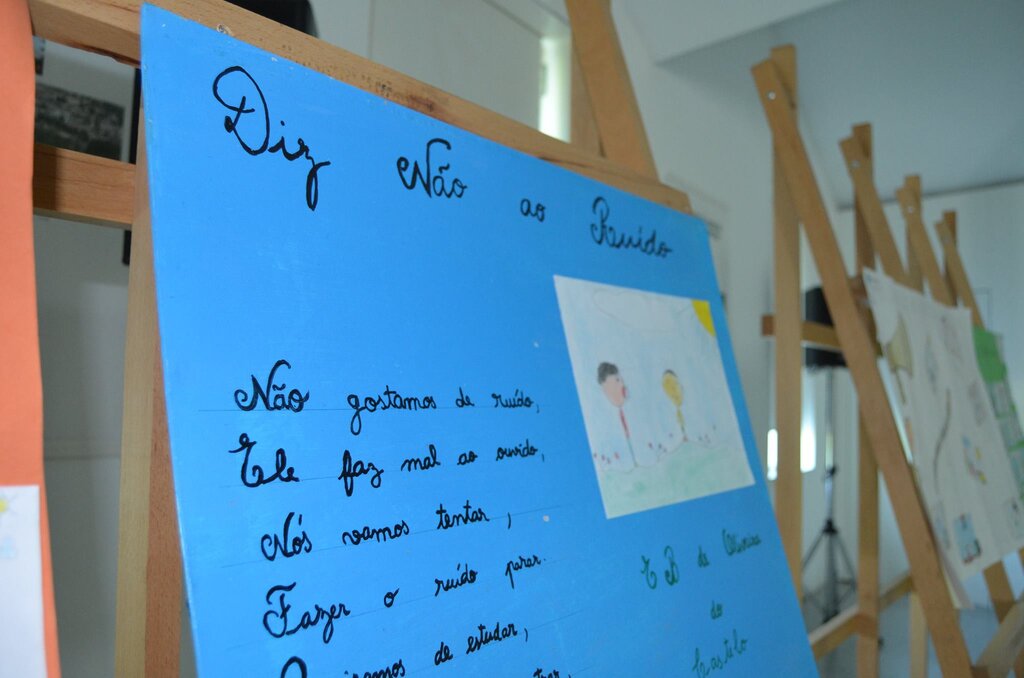 Diz Não ao Ruído
Não gostamos de ruído,
Ele faz mal ao ouvido,
Nós vamos tentar,
Fazer o ruído parar.
de estudar,
EB de Oliveira
do
Castelo